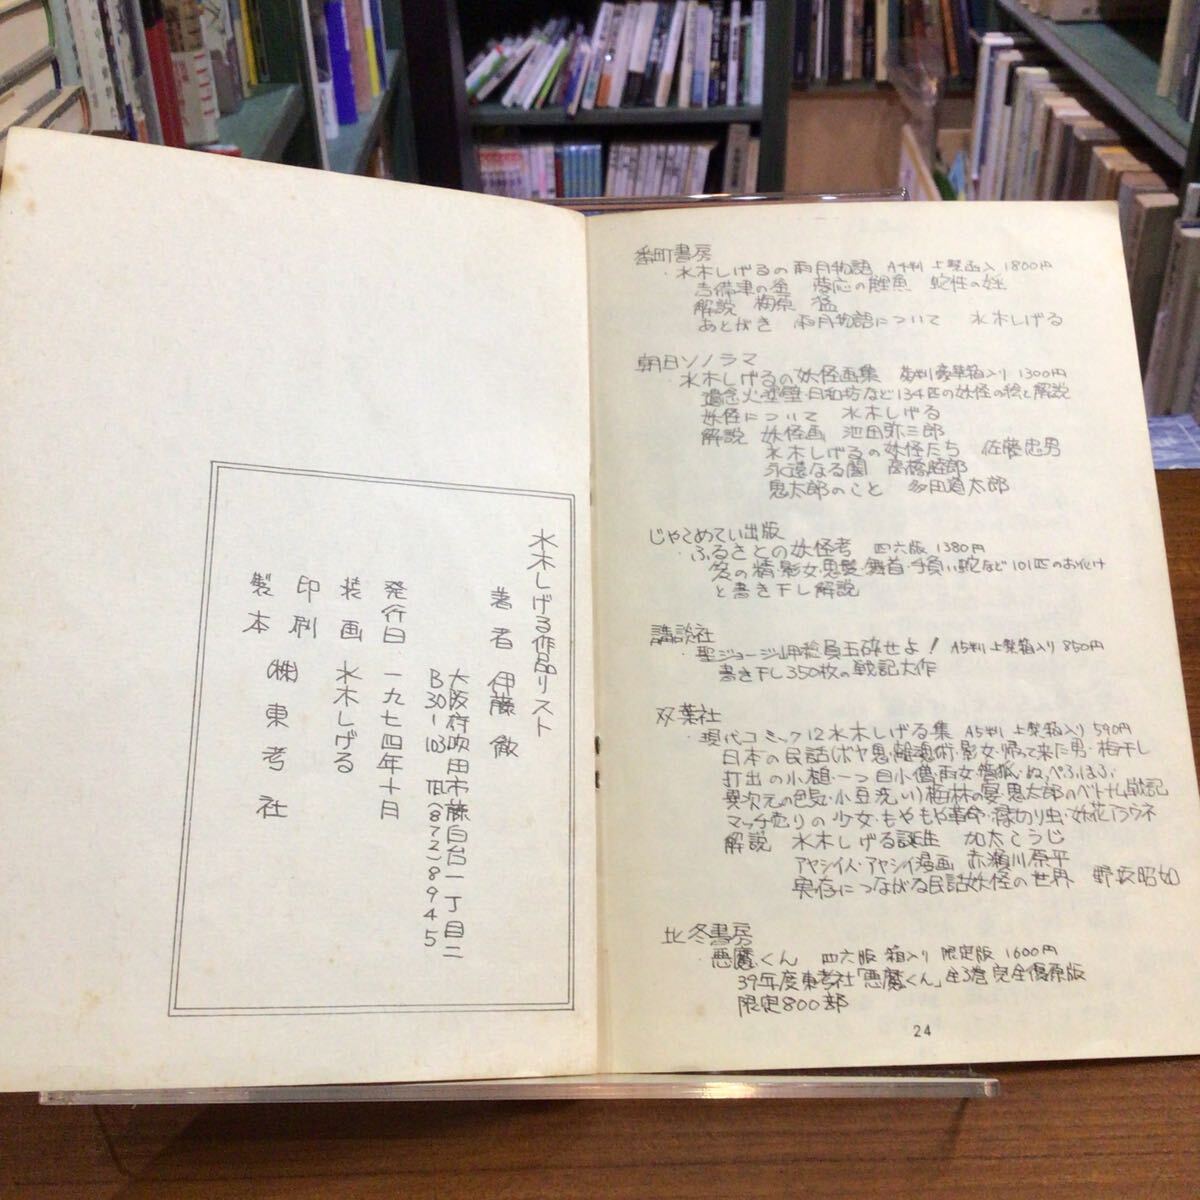 水木しげる作品リスト
著者 伊藤 徹
大阪府吹田市藤白台一丁目二
B30-103 TEL(872)8945
発行日 一九七四年十月
装画 水木しげる
印刷
製本 (株)東考社
番町書房
・水木しげるの雨月物語 A4判 上製函入 1800円
吉備津の釜 夢応の鯉魚 蛇性の婬
解説 梅原 猛
あとがき 雨月物語について 水木しげる
朝日ソノラマ
・水木しげるの妖怪画集 豪華箱入り 1300円
遺念火・日和坊など134匹の妖怪の絵と解説
妖怪について 水木しげる
解説 妖怪画 池田弥三郎
水木しげるの妖怪たち 佐藤忠男
永遠なる闇 高橋睦郎
鬼太郎のこと 多田道太郎
じゃこめてい出版
・ふるさとの妖怪考 四六版 1380円
の精・影女・鬼髪・舞首・手負い蛇など101匹のお化け
と書き下し解説
講談社
・聖ジョージ岬総員玉砕せよ! A5判 上製箱入り 850円
書き下し350枚の戦記大作
双葉社
・現代コミック12水木しげる集 A5判 上製箱入り 590円
日本の民話(ボヤ鬼・離魂術・影女・帰って来た男・梅干し
打出の小槌・一つ目小僧・雨女・管狐・ぬっぺふほふ
異次元の色気・小豆洗い)梅林の宴・鬼太郎のベトナム戦記
マッチ売りの少女・もやもや革命・縁切り虫・妖花アラウネ
解説 水木しげる誕生 加太こうじ
アヤシイ人・アヤシイ漫画 赤瀬川原平
実存につながる民話妖怪の世界 野坂昭如
北冬書房
・悪魔くん 四六版 箱入り 限定版 1600円
39年度東考社「悪魔くん」全3巻完全復原版
限定800部
24